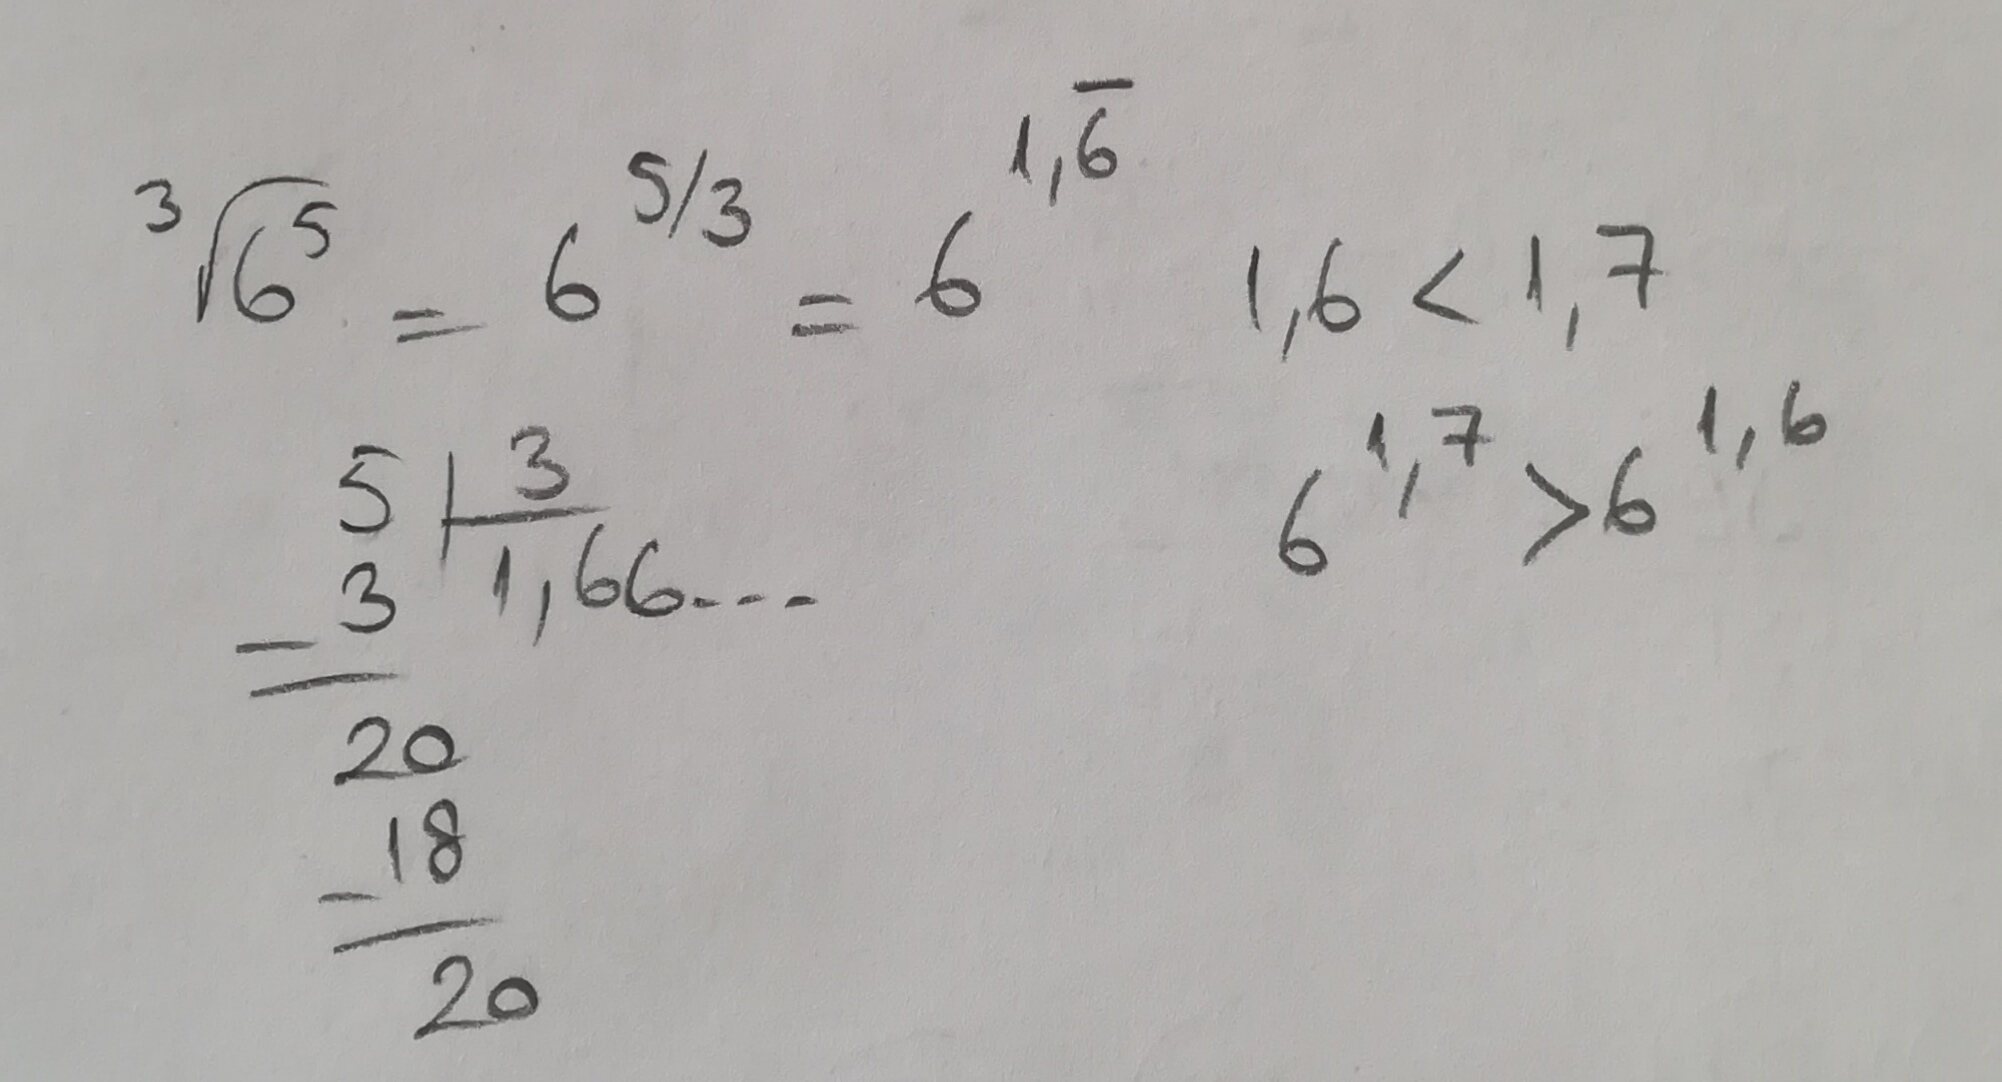 ∛6⁵ = 6^{5/3} = 6^{1,6̅}
1,6 < 1,7
6^{1,7} > 6^{1,6}
5 | 3
− 3 1,66....
20
− 18
20